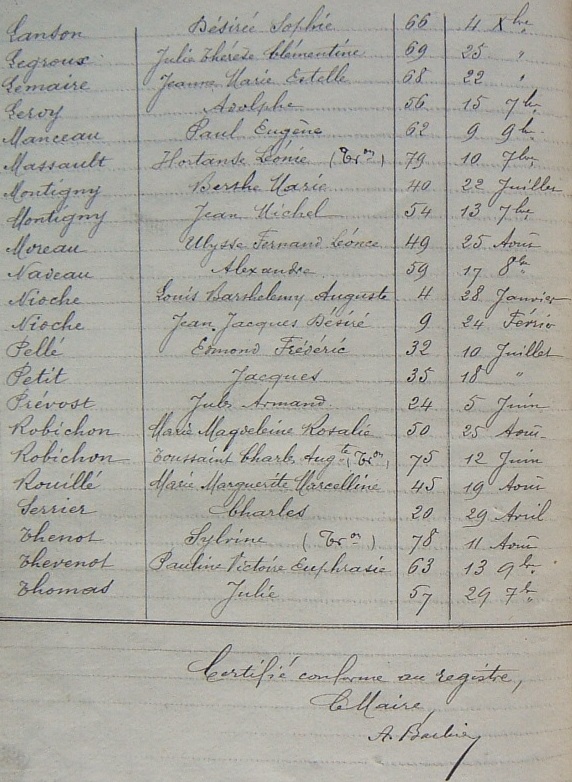 Lanson Désirée Sophie 66 4 Xbre
Legroux Julie Thérèse Clémentine 69 25 "
Lemaire Jeanne Marie Estelle 68 22 "
Leroy Adolphe 56 15 7bre
Manceau Paul Eugène 62 9 9bre
Massault Hortanse Léonie (Tron) 79 10 7bre
Montigny Berthe Marie 40 22 Juillet
Montigny Jean Michel 54 13 7bre
Moreau Ulysse Fernand Léonce 49 25 Août
Naveau Alexandre 59 17 8bre
Nioche Louis Barthelemy Auguste 4 28 Janvier
Nioche Jean Jacques Désiré 9 24 Février
Pellé Edmond Frédéric 32 10 Juillet
Petit Jacques 35 18 "
Prévost Jules Armand 24 5 Juin
Robichon Marie Magdeleine Rosalie 50 25 Août
Robichon Toussaint Charles Augte (Tron) 75 12 Juin
Rouillé Marie Marguerite Marcelline 45 19 Août
Serrier Charles 20 29 Avril
Thenot Sylvine (Tron) 78 11 Août
Thevenot Pauline Victoire Euphrasie 63 13 9bre
Thomas Julie 57 29 7bre
Certifié conforme au registre,
Le Maire,
A. Barbier